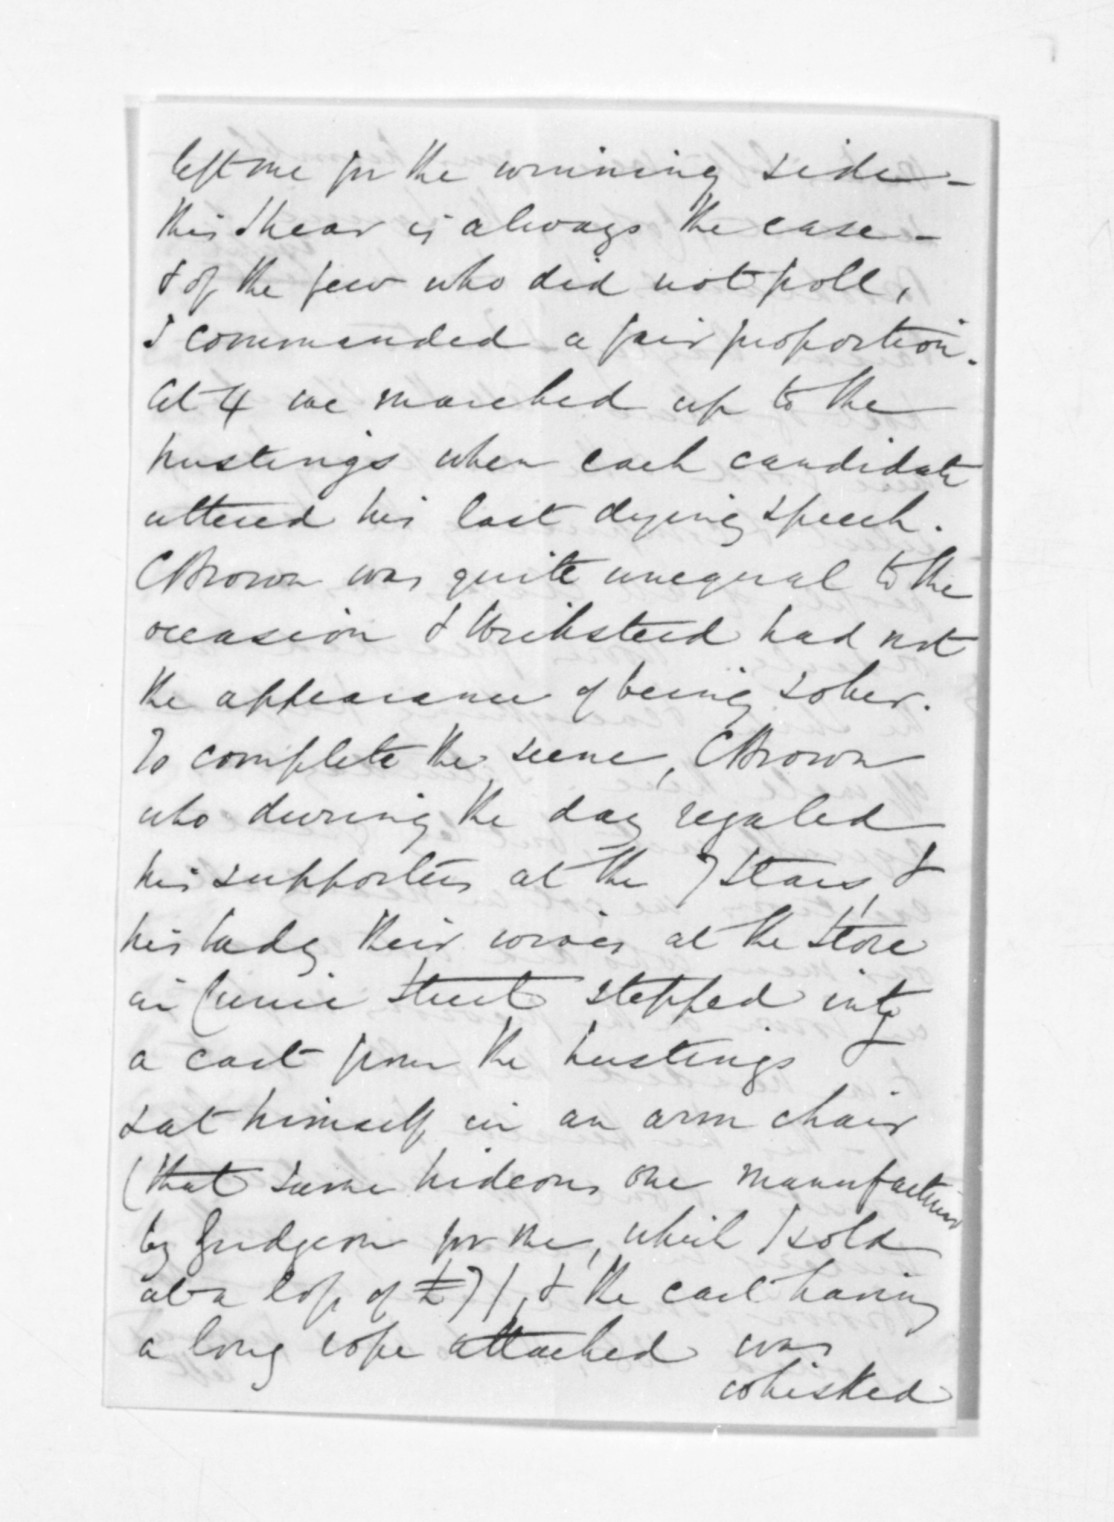 left me for the winning side -
this I hear is always the case -
& of the few who did not poll,
I commanded a fair proportion.
At 4 we marched up to the
hustings when each candidate
uttered his last dying speech.
C Brown was quite unequal to the
occasion & Wicksteed had not
the appearance of being sober.
To complete the scene, C Brown
who during the day regaled
his supporters at the 7 Stars, &
his lady their wives at the Store
in Currie Street stepped into
a cart from the hustings &
sat himself in an arm chair
(that same hideous one manufactured
by Gudgeon for me, which I sold
at a loss of £7/, & the cart having
a long rope attached was
whisked